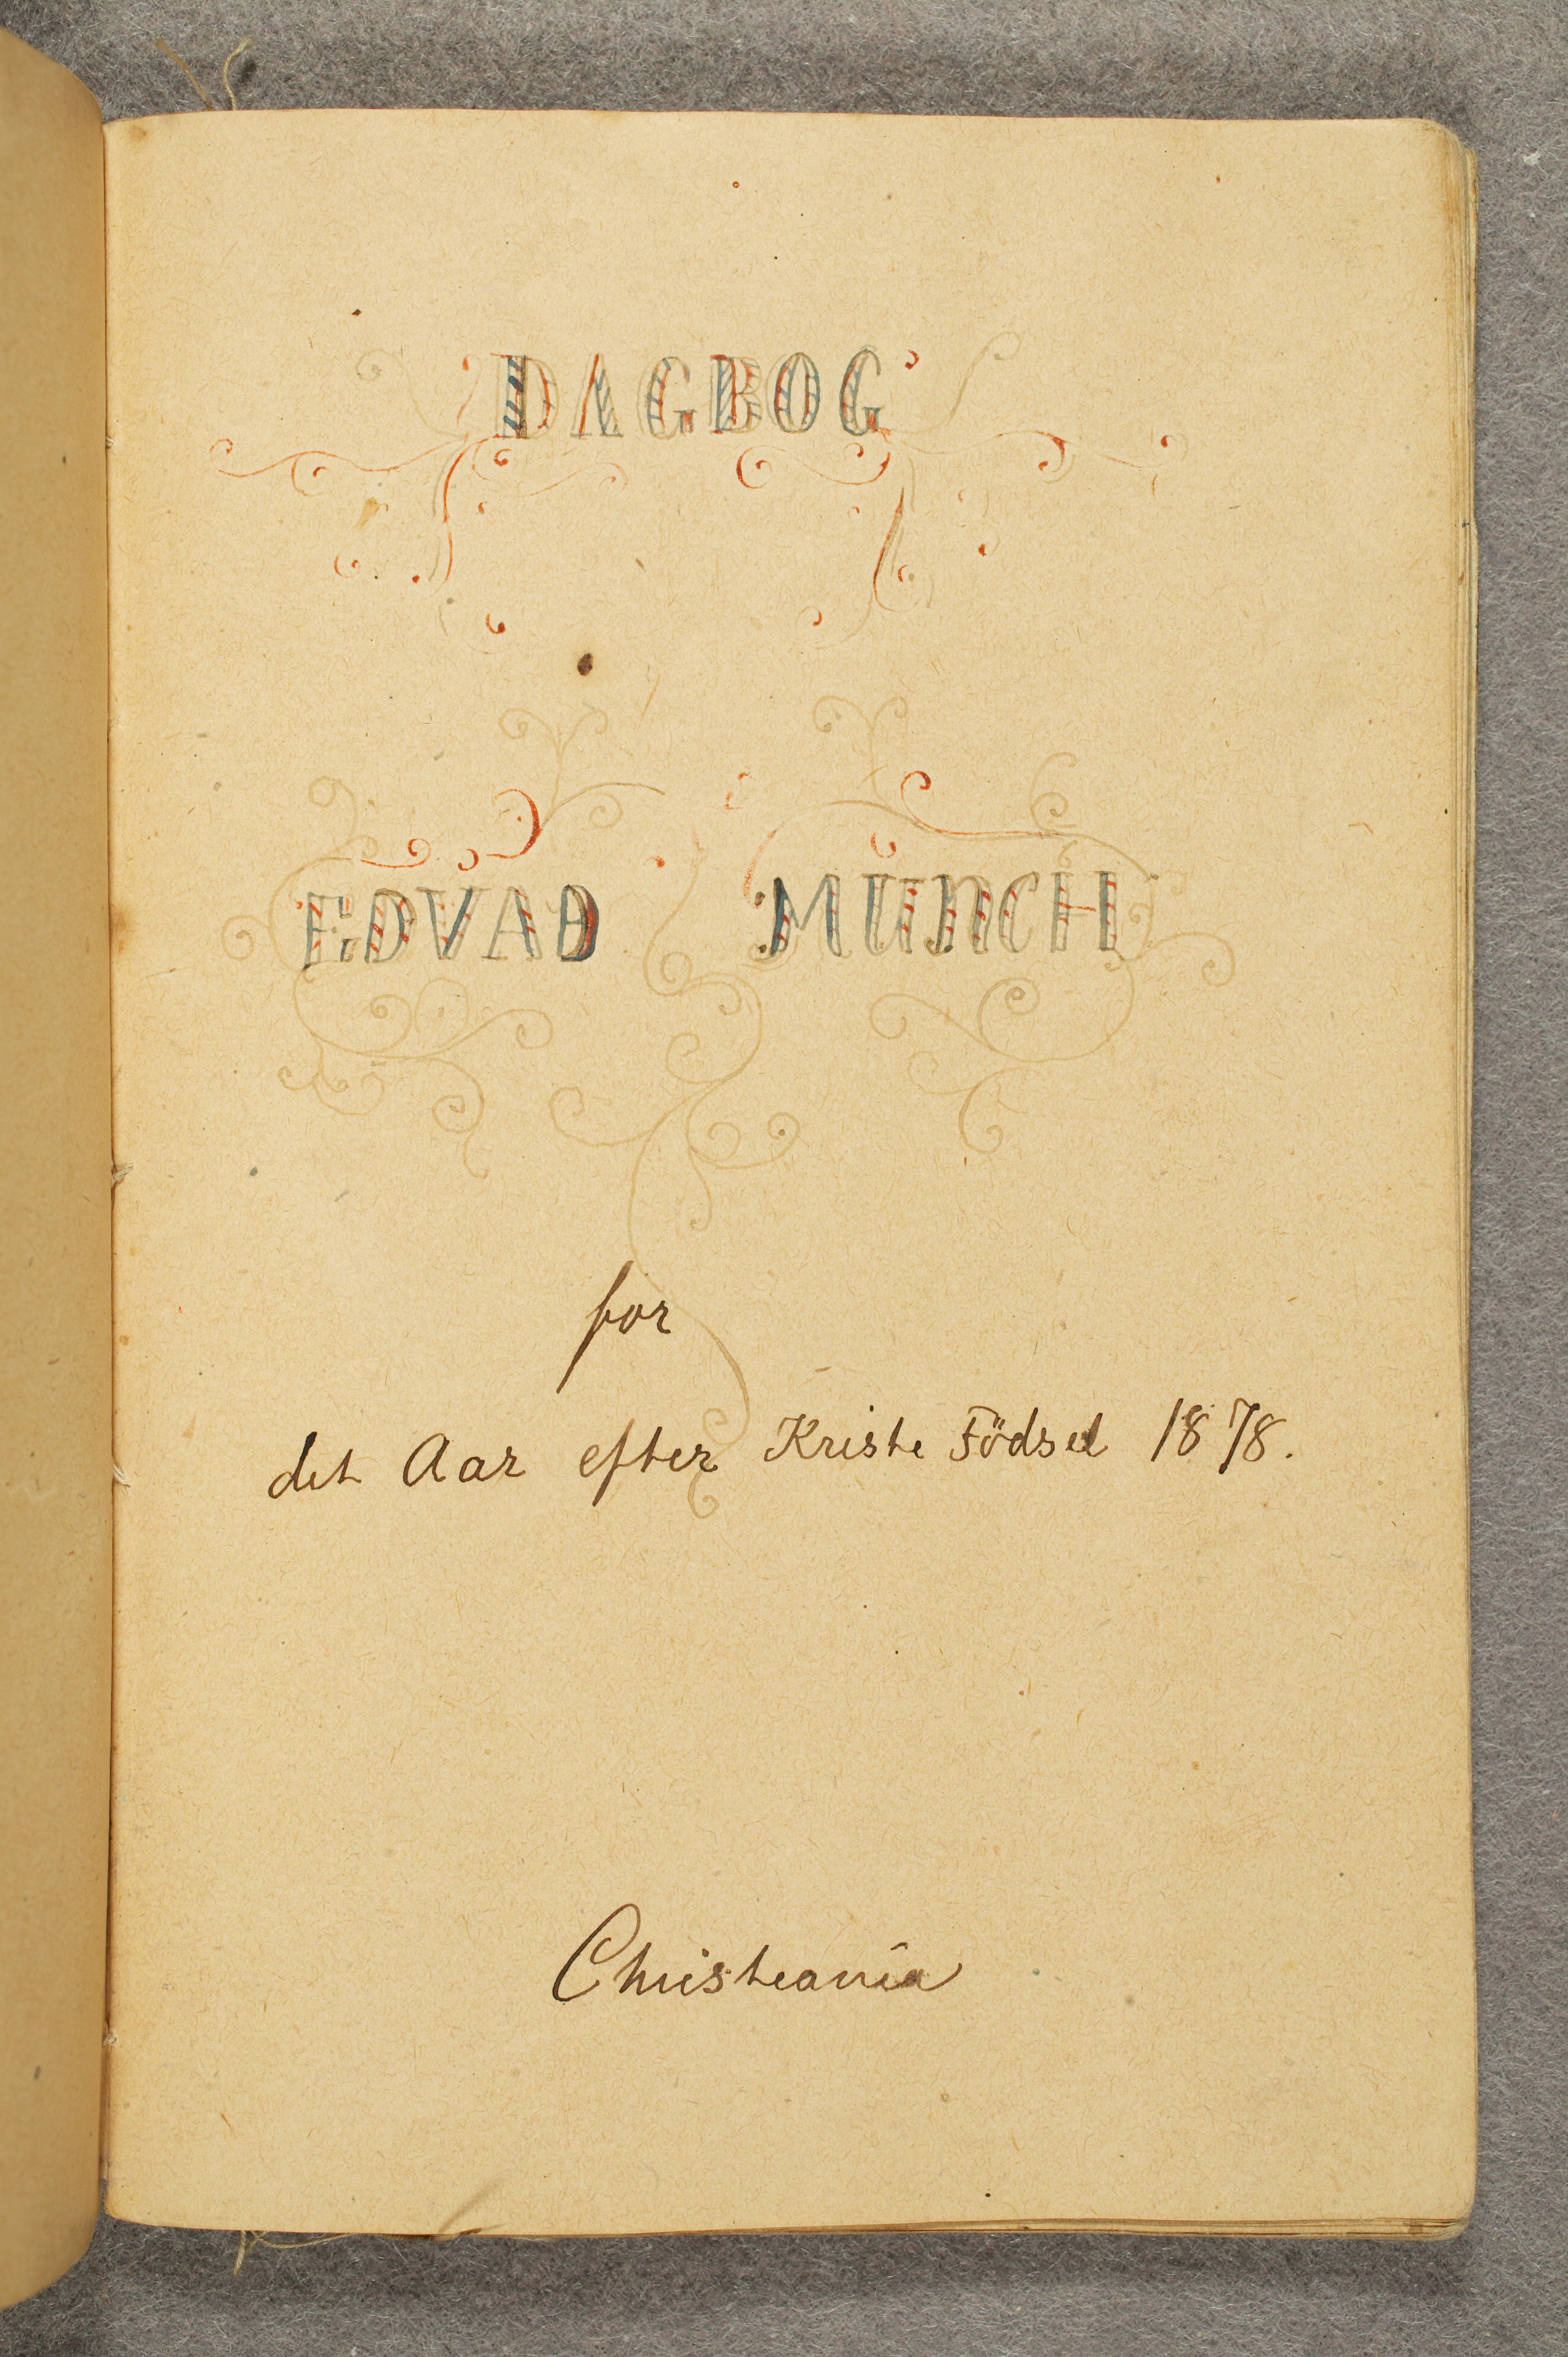 DAGBOG
EDVAD MUNCH
for
det Aar efter Kriste Födsel 1878.
Christiania